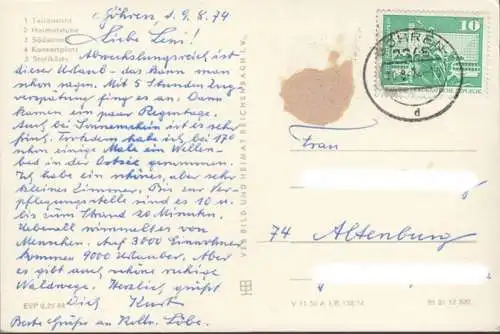 Göhren, d. 9.8.74
1 Teilansicht
2 Heimatstube
3 Südstrand
4 Konzertplatz
5 Steilküste
Liebe Leni!
Abwechslungsreich ist
dieser Urlaub - das kann man
schon sagen. Mit 5 Stunden Zug-
verspätung fing es an. Dann
kamen ein paar Regentage.
Auch bei Sonnenschein ist es sehr
frisch. Trotzdem habe ich bei 17°
schon einige Male ein Wellen-
bad in der Ostsee genommen.
Ich habe ein schönes, aber sehr
kleines Zimmer. Bis zur Ver-
pflegungsstelle sind es 10 u.
bis zum Strand 20 Minuten.
Ueberall wimmelt es von
Menschen. Auf 3000 Einwohner
kommen 9000 Urlauber. Aber
es gibt auch schöne ruhige
Waldwege. Herzlich grüßt
EVP 0,25 M
Dich Kurt
Beste Grüße an Kolln. Löbe.
VEB BILD UND HEIMAT REICHENBACH I. V.
10
GÖHREN
d
Frau
74 Altenburg